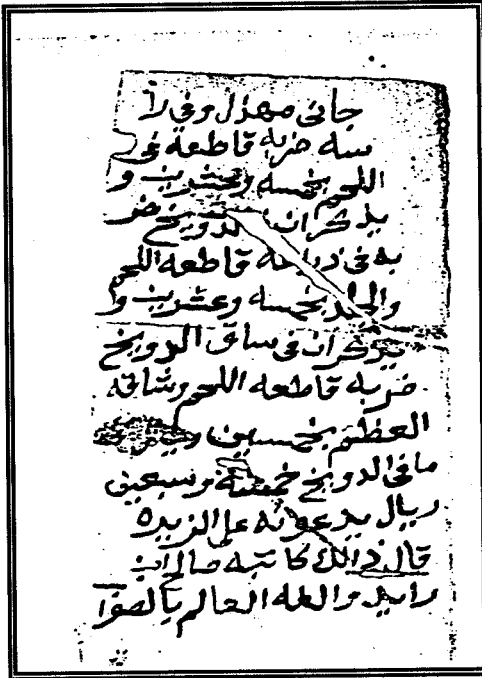 جاني مهذل وفي رأ
سه ضربه قاطعه في
اللحم بخمسه وعشرين و
يذكر ان الدويخ ضر
به في ذراعه قاطعه اللحم
والجلد بخمسه وعشرين وا
يذكر ان في ساق الدويخ
ضربه قاطعه اللحم وشاقه
العظم بخمسين
ما في الدويخ خمسة وسبعين
ريال يدعونه على الزيده
قال ذالك كاتبه صالح ابن
رابد والله العالم بالصوا